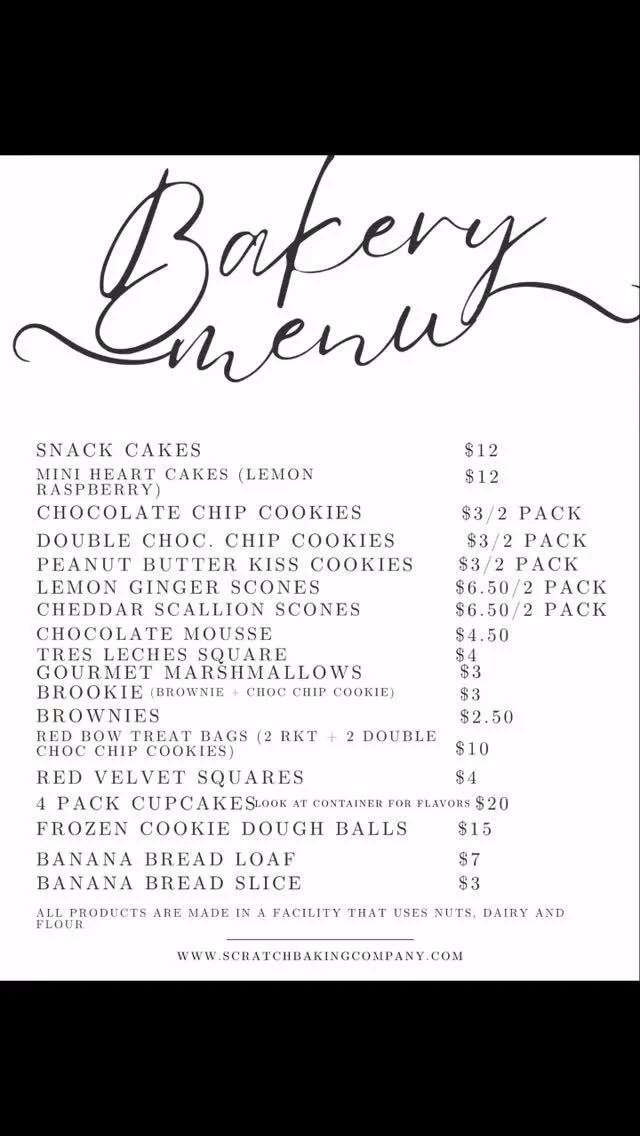 Bakery
menu
SNACK CAKES $12
MINI HEART CAKES (LEMON
RASPBERRY) $12
CHOCOLATE CHIP COOKIES $3/2 PACK
DOUBLE CHOC. CHIP COOKIES $3/2 PACK
PEANUT BUTTER KISS COOKIES $3/2 PACK
LEMON GINGER SCONES $6.50/2 PACK
CHEDDAR SCALLION SCONES $6.50/2 PACK
CHOCOLATE MOUSSE $4.50
TRES LECHES SQUARE $4
GOURMET MARSHMALLOWS $3
BROOKIE (BROWNIE + CHOC CHIP COOKIE) $3
BROWNIES $2.50
RED BOW TREAT BAGS (2 RKT + 2 DOUBLE
CHOC CHIP COOKIES) $10
RED VELVET SQUARES $4
4 PACK CUPCAKES LOOK AT CONTAINER FOR FLAVORS $20
FROZEN COOKIE DOUGH BALLS $15
BANANA BREAD LOAF $7
BANANA BREAD SLICE $3
ALL PRODUCTS ARE MADE IN A FACILITY THAT USES NUTS, DAIRY AND
FLOUR
WWW.SCRATCHBAKINGCOMPANY.COM